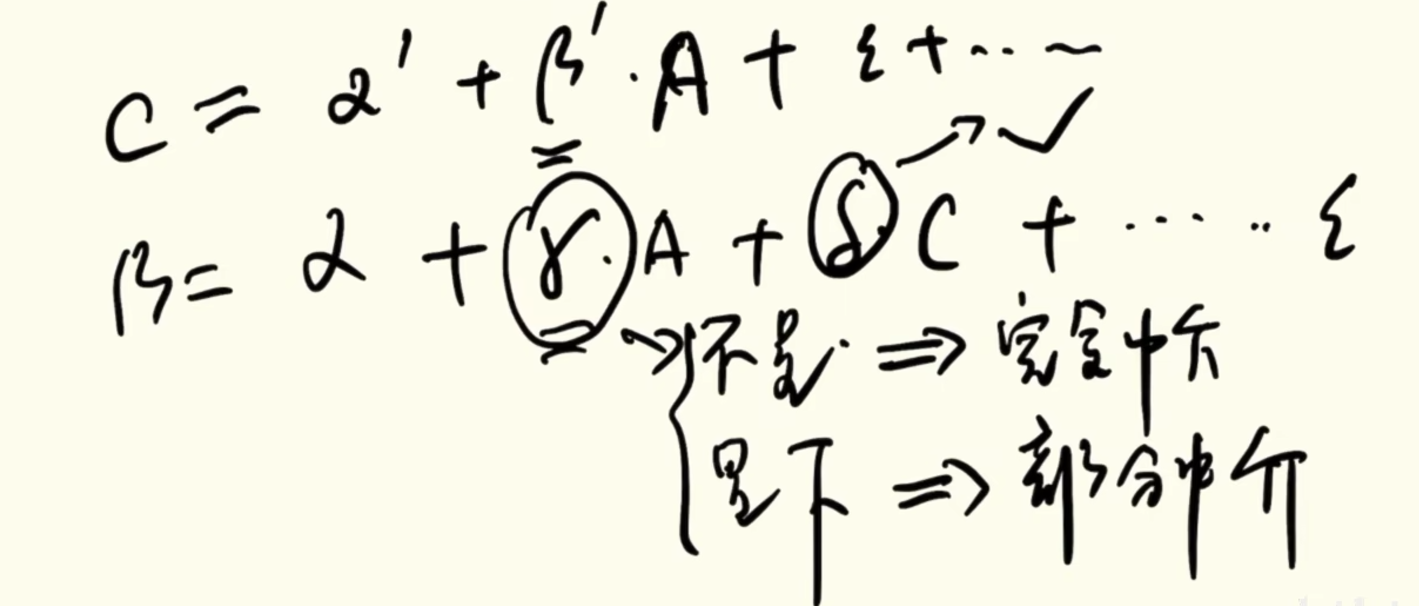 C = α' + β'·A + ε + ...~
B = α + γ·A + δC + ...... ε
不显· ⇒ 完全中介
显下 ⇒ 部分中介